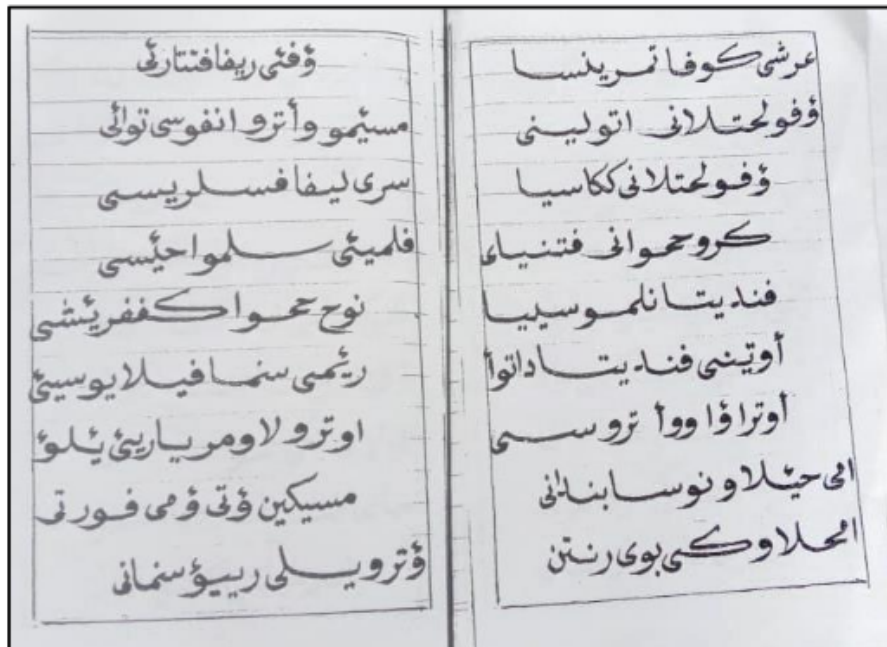 عرشى كوفا تمرينسا
ؤفولحتلانى اتولينى
ؤفولحتلانى ككاسيا
كروححوانى فتنياء
فنديتا نلموسييا
أوتينى فنديتا داتوأ
أوتراؤا ووأ تروسى
امى حيئلا ونوسابندانى
امحلاوكى بوى رنتن
ؤفئى ريفافنتارئى
مسيئمو وأترو انفوسى توالى
سرى ليفا فسلريسى
فلميئى سلموا حيئسى
نوح ححوا كففريئشى
ريئمى سنما فيلا يوسيئ
اوترولاومريارييئ يئلؤ
مسيكين ؤتى ؤمى فورتى
ؤترويلى ربيؤ سنمانى